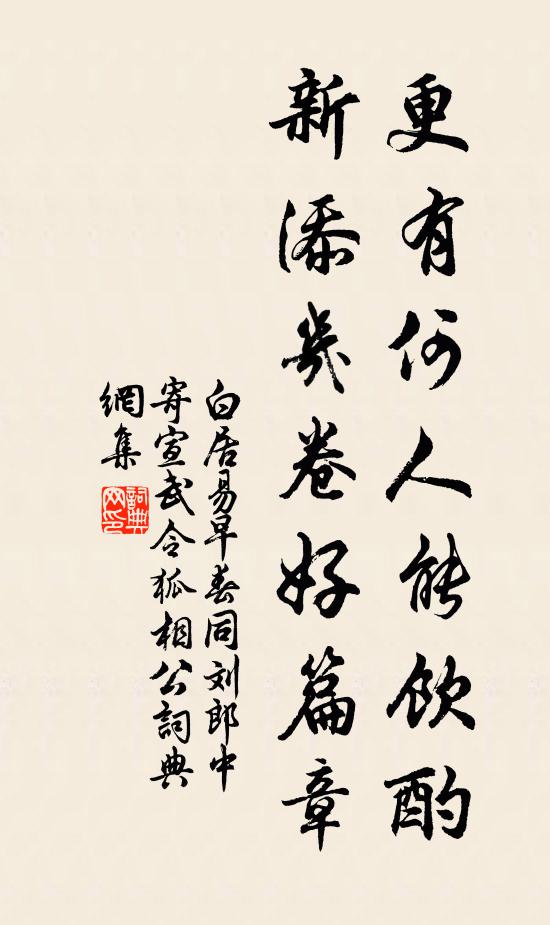 更有何人能飲酌
新添幾卷好篇章
白居易早春同刘郎中
寄宣武令狐相公詞典
網集
詞典
网印